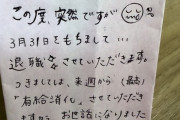 この度、突然ですが
3月31日でもちまして…
退職させていただきます。
つきましては、来週から(最高)
有給消化、させていただき
ますから、お世話になりました